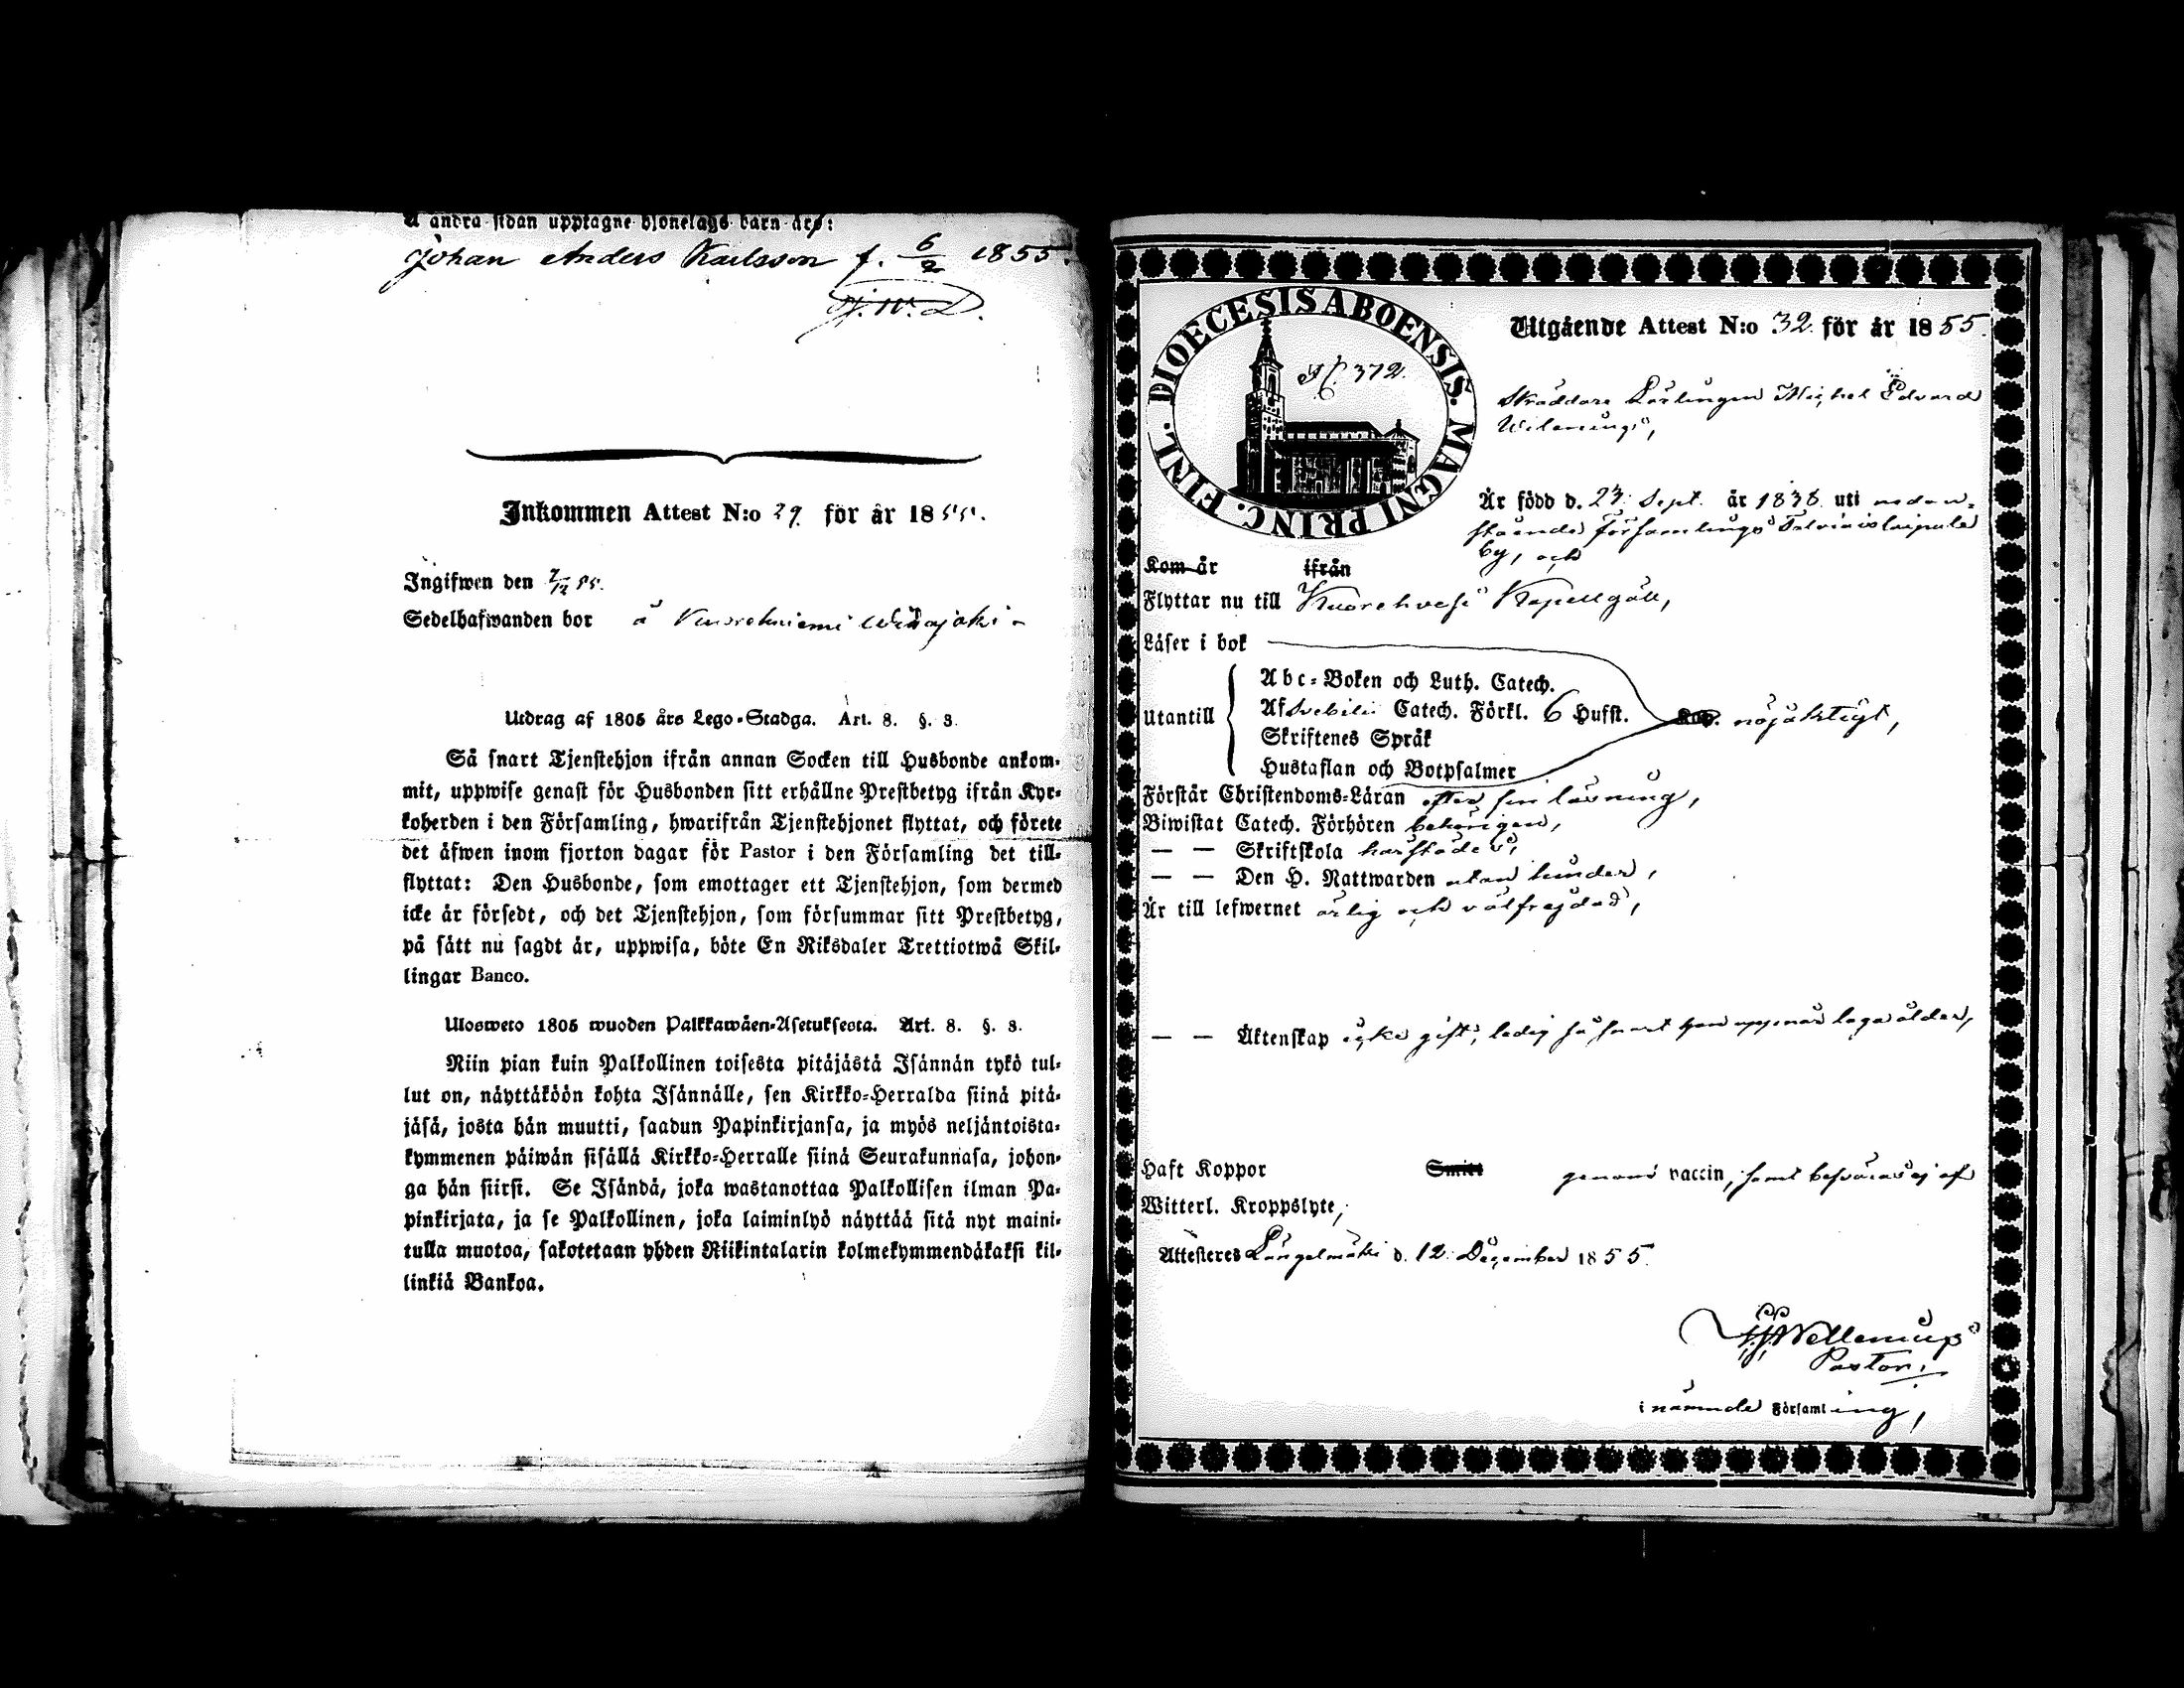 Å andra sidan upptagne hjonelags barn äro:
Johan Anders Karlsson f. 6/2 1855.
Inkommen Attest N:o 29 för år 1855.
Ingifwen den 7/12 55.
Sedelhafwanden bor å
Utdrag af 1805 års Lego-Stadga. Art. 8. §. 3.
Så snart Tjenstehjon ifrån annan Socken till Husbonde ankom-
mit, uppwise genast för Husbonden sitt erhållne Prestbetyg ifrån Kyr-
koherden i den Församling, hwarifrån Tjenstehjonet flyttat, och förete
det äfwen inom fjorton dagar för Pastor i den Församling det till-
flyttat: Den Husbonde, som emottager ett Tjenstehjon, som dermed
icke är försedt, och det Tjenstehjon, som försummar sitt Prestbetyg,
på sätt nu sagdt är, uppwisa, böte En Riksdaler Trettiotwå Skil-
lingar Banco.
Ulosweto 1805 wuoden Palkkawäen-Asetuksesta. Art. 8. §. 3.
Niin pian kuin Palkollinen toisesta pitäjästä Isännän tykö tul-
lut on, näyttäköön kohta Isännälle, sen Kirkko-Herralda siinä pitä-
jäsä, josta hän muutti, saadun Papinkirjansa, ja myös neljäntoista-
kymmenen päiwän sisällä Kirkko-Herralle siinä Seurakunnasa, johon-
ga hän siirsi. Se Isändä, joka wastanottaa Palkollisen ilman Pa-
pinkirjata, ja se Palkollinen, joka laiminlyö näyttää sitä nyt maini-
tulla muotoa, sakotetaan yhden Riikintalarin kolmekymmendäkaksi kil-
linkiä Bankoa.
DIOECESIS ABOENSIS. MAGNI PRINC. FINL.
372.
Utgående Attest N:o 32 för år 1855.
Skräddare Lärlingen Michel Edvard
Är född d. 23 Sept. år 1838 uti nedan-
stående församlings
by, och
Kom år ifrån
Flyttar nu till Kuorehvesi Kapellgäll,
Läser i bok
Utantill
Abc-Boken och Luth. Catech.
Af Svebilii Catech. Förkl. 6 Hufst. nöjaktigt,
Skriftenes Språk
Hustaflan och Botpsalmer
Förstår Christendoms-Läran efter sin läsning,
Biwistat Catech. Förhören behörigen,
— — Skriftskola härstädes,
— — Den H. Nattwarden utan hinder,
Är till lefwernet ärlig och välfrejdad,
— — Äktenskap icke gift, ledig så snart han uppnår laga ålder,
Haft Koppor Smitt genom vaccin, samt besväras ej af
Witterl. Kroppslyte,
Attesteres Längelmäki d. 12 December 1855.
Pastor.
i nämnde Församling,